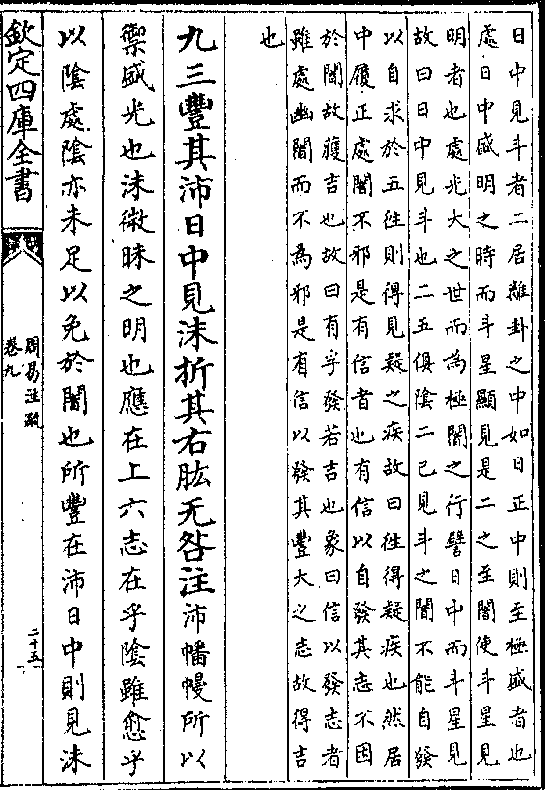 日中見斗者二居離卦之中如日正中則至極盛者也
處日中盛明之時而斗星顯見是二之至闇使斗星見
明者也處光大之世而為極闇之行譬日中而斗星見
故曰日中見斗也二五俱陰二已見斗之闇不能自發
以自求於五徃則得見疑之疾故曰徃得疑疾也然居
中履正處闇不邪是有信者也有信以自發其志不困
於闇故獲吉也故曰有孚發若吉也象曰信以發志者
雖處幽闇而不為邪是有信以發其豐大之志故得吉
也
九三豐其沛日中見沬折其右肱无咎注沛幡幔所以
禦盛光也沬微昧之明也應在上六志在乎陰雖愈乎
以陰處陰亦未足以免於闇也所豐在沛日中則見沬
欽定四庫全書
周易注疏
卷九
二十五